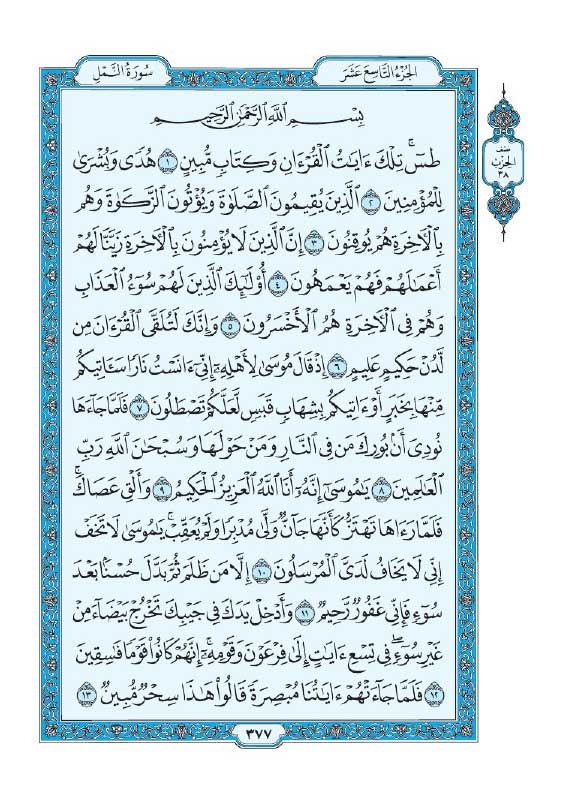 الجزء التاسع عشر
سورة النمل
نصف
الحزب
٣٨
بِسْمِ اللَّهِ الرَّحْمَٰنِ الرَّحِيمِ
طسٓ ۚ تِلْكَ ءَايَٰتُ الْقُرْءَانِ وَكِتَابٍ مُّبِينٍ ١ هُدًى وَبُشْرَىٰ
لِلْمُؤْمِنِينَ ٢ الَّذِينَ يُقِيمُونَ الصَّلَوٰةَ وَيُؤْتُونَ الزَّكَوٰةَ وَهُم
بِالْءَاخِرَةِ هُمْ يُوقِنُونَ ٣ إِنَّ الَّذِينَ لَا يُؤْمِنُونَ بِالْءَاخِرَةِ زَيَّنَّا لَهُمْ
أَعْمَٰلَهُمْ فَهُمْ يَعْمَهُونَ ٤ أُو۟لَٰٓئِكَ الَّذِينَ لَهُمْ سُوٓءُ الْعَذَابِ
وَهُمْ فِي الْءَاخِرَةِ هُمُ الْأَخْسَرُونَ ٥ وَإِنَّكَ لَتُلَقَّى الْقُرْءَانَ مِن
لَّدُنْ حَكِيمٍ عَلِيمٍ ٦ إِذْ قَالَ مُوسَىٰ لِأَهْلِهِۦٓ إِنِّيٓ ءَانَسْتُ نَارًا سَـَٔاتِيكُم
مِّنْهَا بِخَبَرٍ أَوْ ءَاتِيكُم بِشِهَابٍ قَبَسٍ لَّعَلَّكُمْ تَصْطَلُونَ ٧ فَلَمَّا جَآءَهَا
نُودِيَ أَنۢ بُورِكَ مَن فِي النَّارِ وَمَنْ حَوْلَهَا وَسُبْحَٰنَ اللَّهِ رَبِّ
الْعَٰلَمِينَ ٨ يَٰمُوسَىٰٓ إِنَّهُۥٓ أَنَا اللَّهُ الْعَزِيزُ الْحَكِيمُ ٩ وَأَلْقِ عَصَاكَ ۚ
فَلَمَّا رَءَاهَا تَهْتَزُّ كَأَنَّهَا جَآنٌّ وَلَّىٰ مُدْبِرًا وَلَمْ يُعَقِّبْ ۚ يَٰمُوسَىٰ لَا تَخَفْ
إِنِّي لَا يَخَافُ لَدَيَّ الْمُرْسَلُونَ ١٠ إِلَّا مَن ظَلَمَ ثُمَّ بَدَّلَ حُسْنًۢا بَعْدَ
سُوٓءٍ فَإِنِّي غَفُورٌ رَّحِيمٌ ١١ وَأَدْخِلْ يَدَكَ فِي جَيْبِكَ تَخْرُجْ بَيْضَآءَ مِنْ
غَيْرِ سُوٓءٍ ۖ فِي تِسْعِ ءَايَٰتٍ إِلَىٰ فِرْعَوْنَ وَقَوْمِهِۦٓ ۚ إِنَّهُمْ كَانُوا۟ قَوْمًا فَٰسِقِينَ
١٢ فَلَمَّا جَآءَتْهُمْ ءَايَٰتُنَا مُبْصِرَةً قَالُوا۟ هَٰذَا سِحْرٌ مُّبِينٌ ١٣
٣٧٧